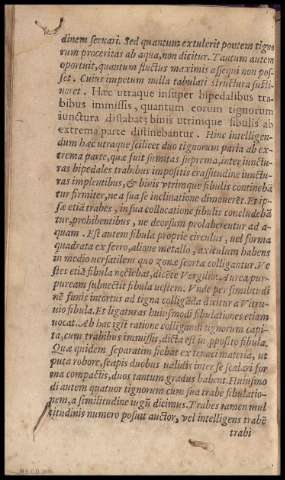 dinem seruari. Sed quantum extulerit pontem tigno
rum proceritas ab aqua, non dicitur. Tantum autem
oportuit, quantum fluctus maximis assequi non pos-
set. Cuius impetum nulla tabulati structura susti-
neret. Hæc utraque insuper bipedalibus tra-
bibus immissis, quantum eorum tignorum
iunctura distabat, binis utrimque fibulis ab
extrema parte distinebantur. Hinc intelligen-
dum hæc utraque scilicet duo tignorum paria ab ex-
trema parte, quæ fuit summitas suprema, inter iunctu-
ras bipedales trabibus impositis crassitudine iunctu-
ras implentibus, & binis utrimque fibulis contineba
tur firmiter, ne a sua se inclinatione dimouerēt. Et ip-
sæ etiā trabes, in sua collocatione fibulis concludebā
tur, prohibentibus, ne deorsum prolaberentur ad a-
quam. Est autem fibula proprie circulus, uel forma
quadrata ex ferro, alioue metallo, axiculum habens
in medio uersatilem quo zonæ scorta colligantur. Ve-
stes etiā fibula nectebat, dicēte Vergilio. Aurea pur-
puream subnectit fibula uestem. Vnde per similitudi
nē funis intortus ad tigna colliganda dicitur a Vitru-
uio fibula. Et ligaturas huiusmodi fibulationes etiam
uocat. Ab hac igit ratione colligandi tignorum capi-
ta, cum trabibus immissis, dicta est in pposito fibula.
Quæ quidem separatim fiebat ex tenaci materia, ut
puta robore, scapis duobus ualidis inter se scalari for
ma compactis, duos tantum gradus habent. Huiusmo
di autem quatuor tignorum cum sua trabe fibulatio-
nem, a similitudine iugū dicimus. Trabes tamen mul
titudinis numero posuit auctor, vel intelligens trabē
trabi